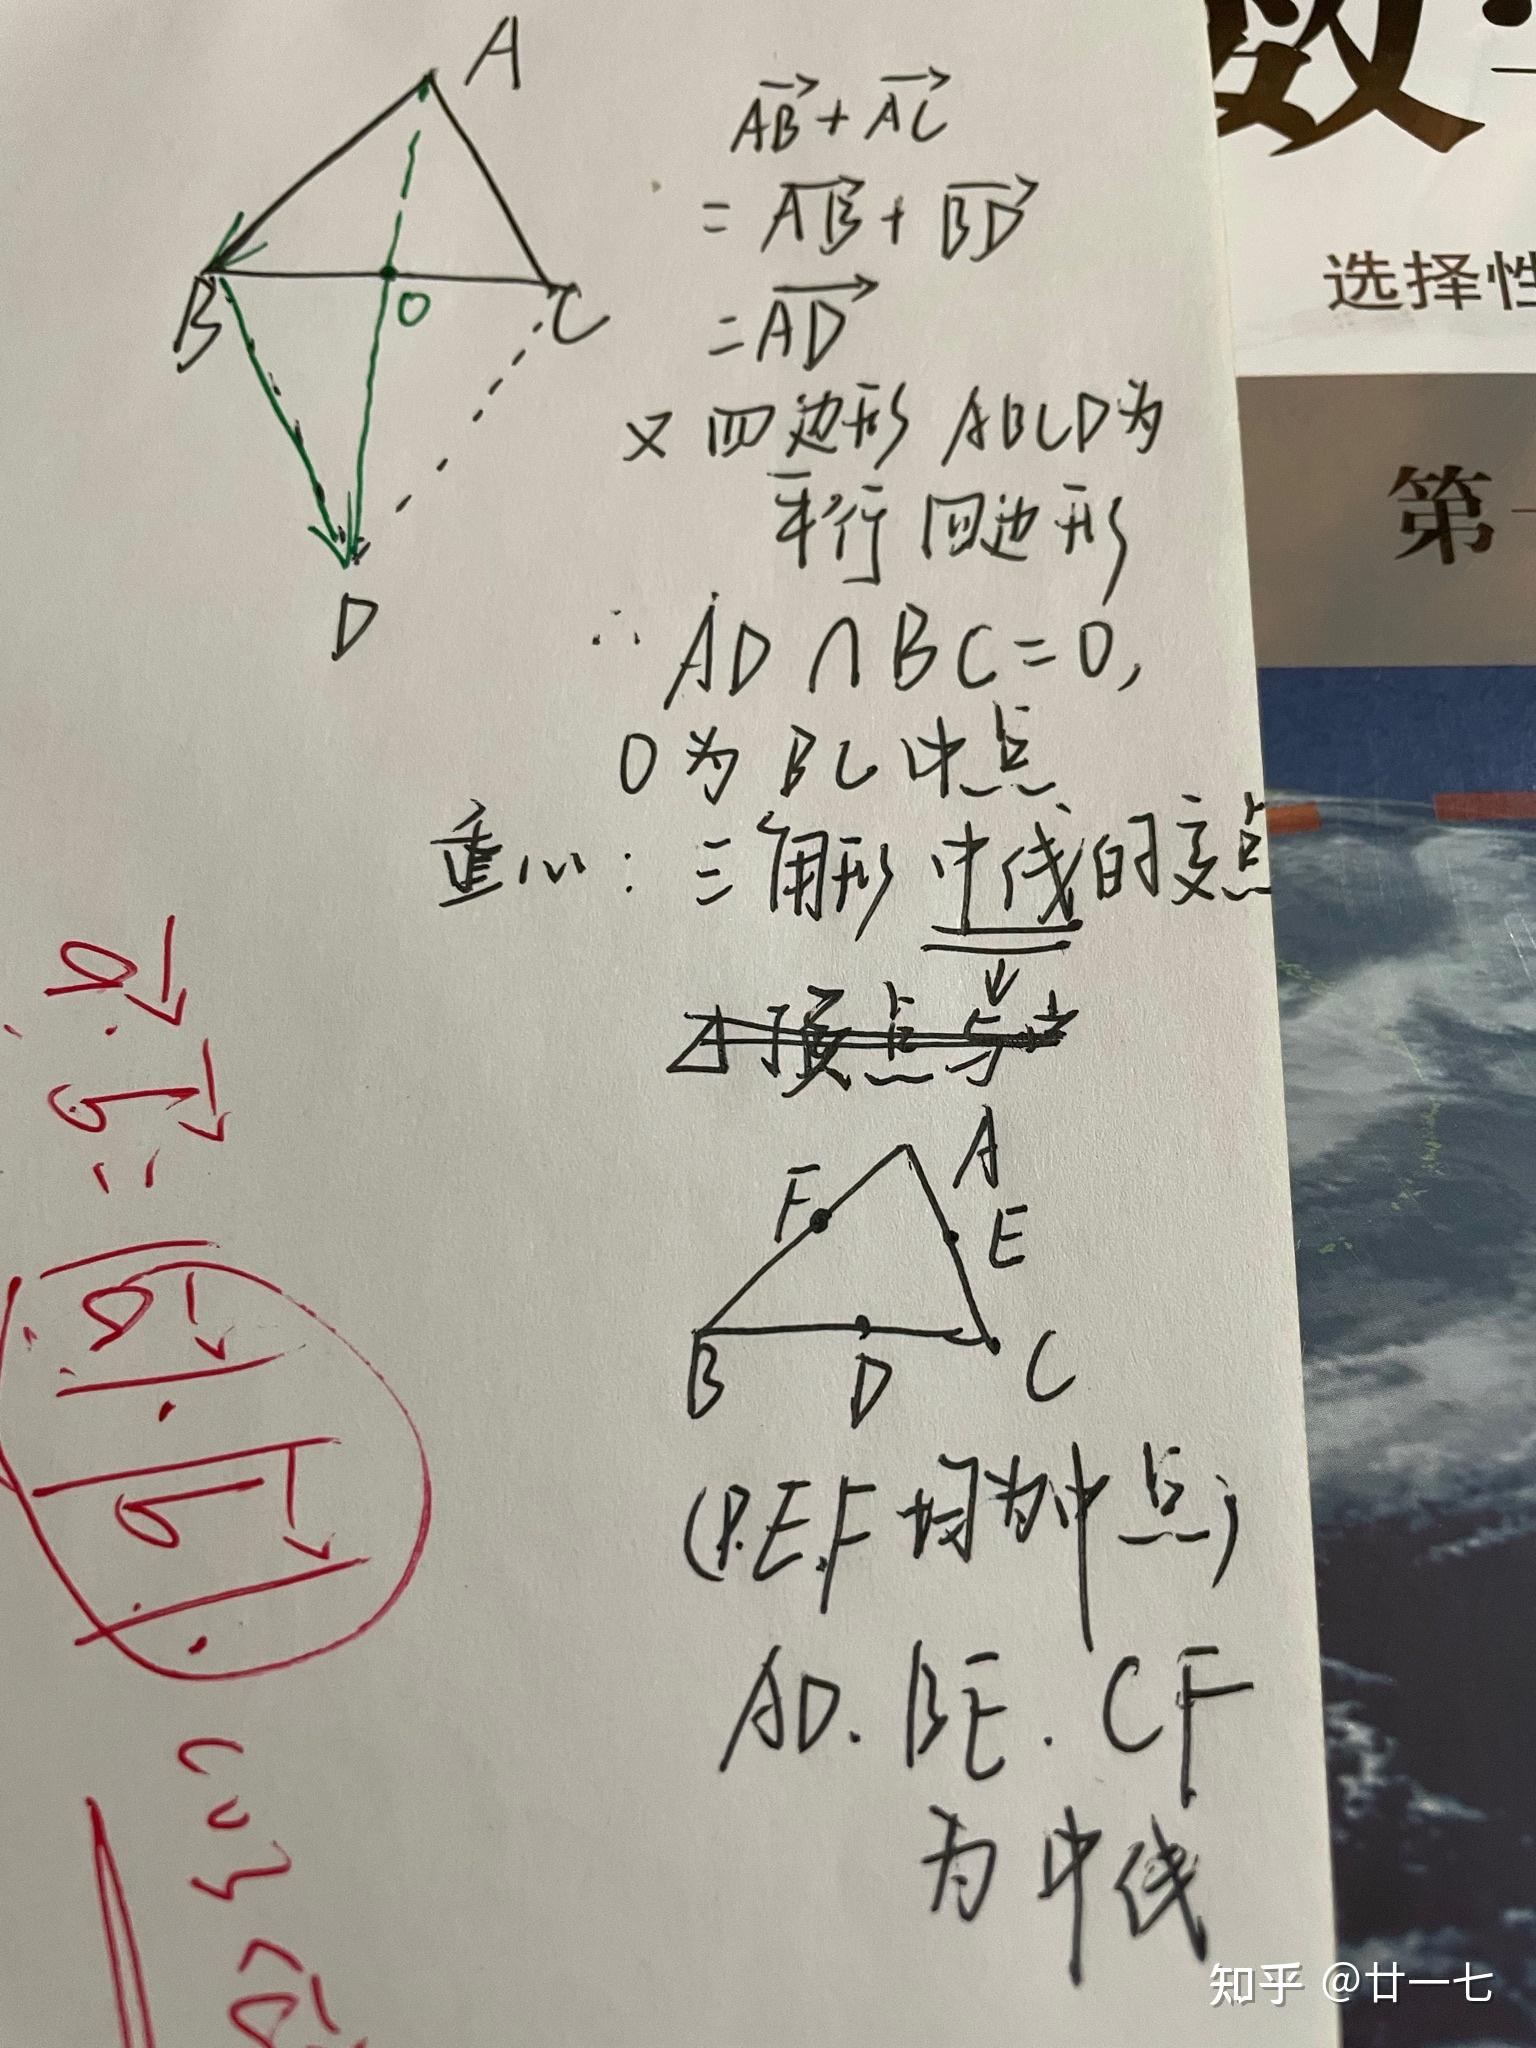 A
B
O
C
D
AB + AC
= AB + BD
= AD
又四边形 ABCD为
平行四边形
∴ AD ∩ BC = O,
O为BC中点
重心：三角形中线的交点
A
F
E
B
D
C
(D.E.F 均为中点)
AD. BE. CF
为中线
a · b = |a| · |b| · cos<a
数
选择性
第一
知乎 @廿一七